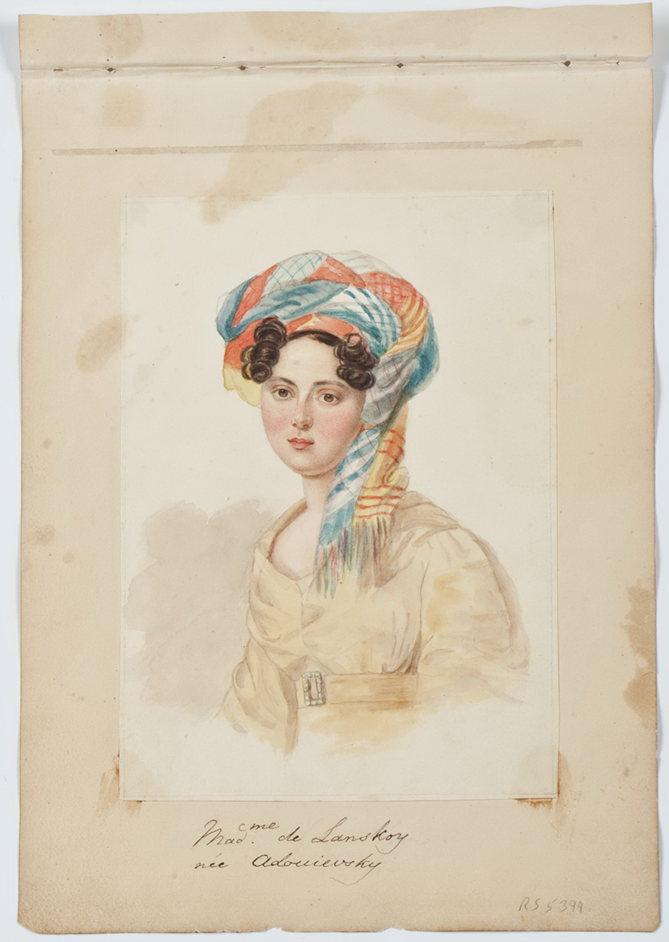 Mad.cme de Lanskoy
née Adouievsky
RS 5399